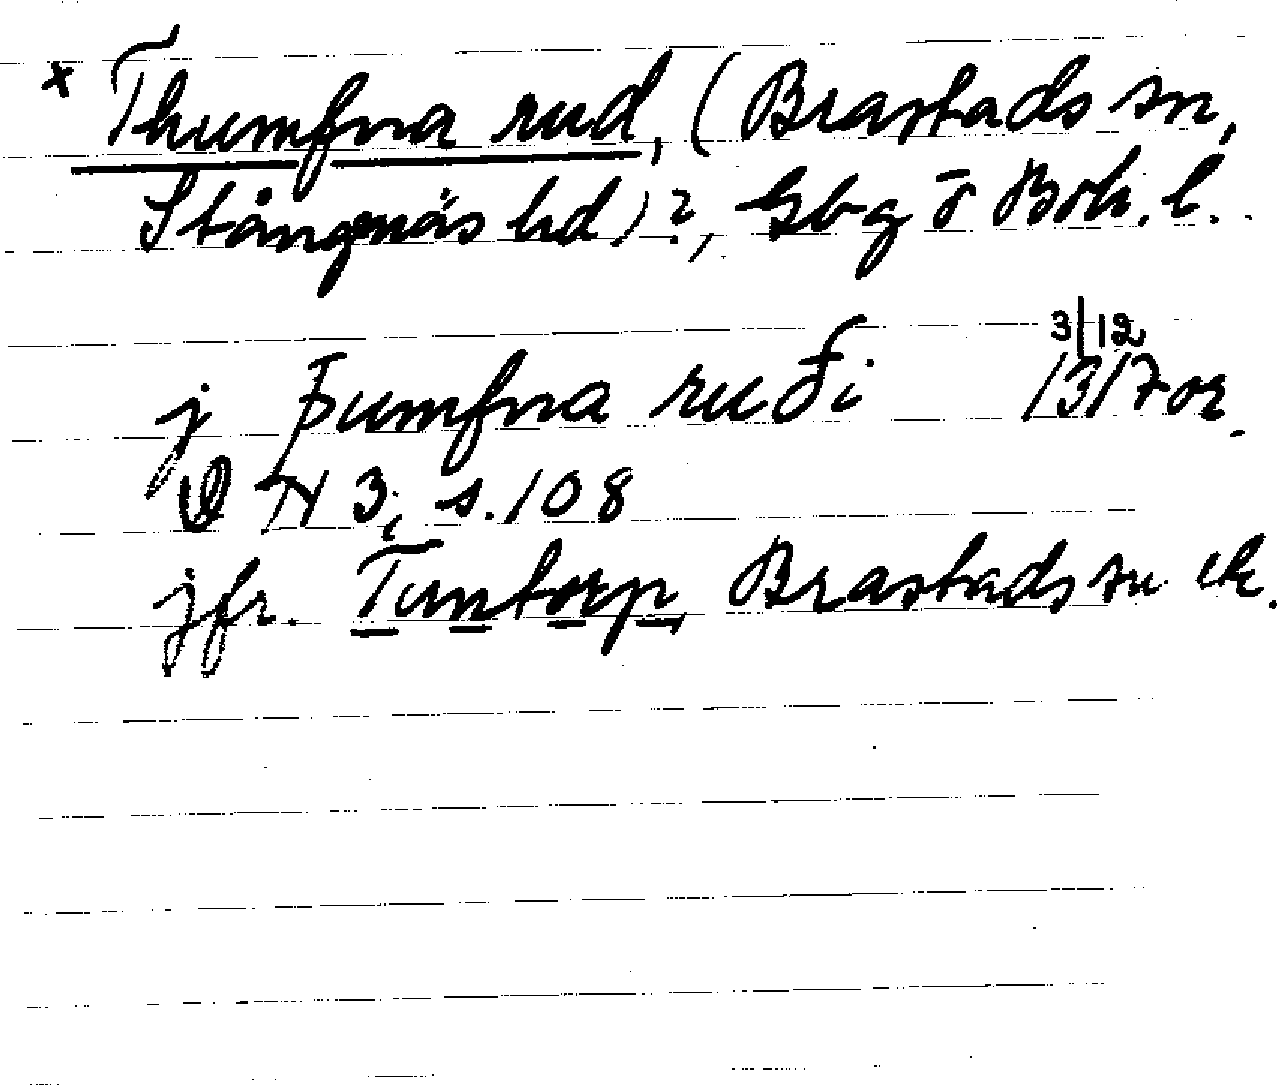 x Thumfna rud, (Brastads sn,
Stångenäs hd)?, Gbg o Boh. l.
j þumfna ruði 3/12 1317 or.
DN 3, s. 108
jfr. Tuntorp, Brastads sn etc.